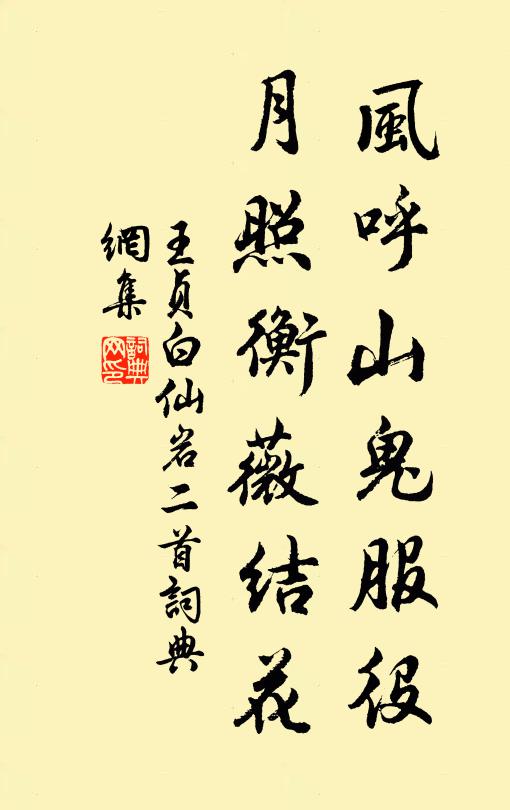 風呼山鬼服役
月照衡薇结花
王贞白仙岩二首詞典
網集
詞典
网印